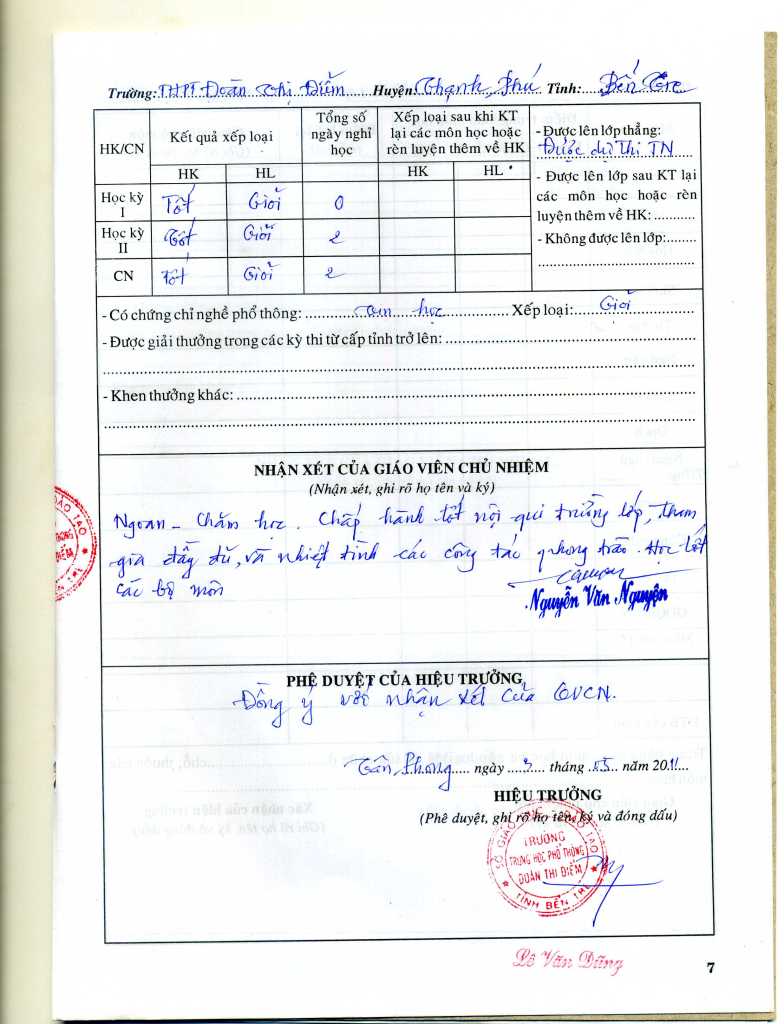 Trường: THPT Đoàn Thị Điểm Huyện: Thạnh Phú Tỉnh: Bến Tre
HK/CN Kết quả xếp loại Tổng số ngày nghỉ học Xếp loại sau khi KT lại các môn học hoặc rèn luyện thêm về HK
HK HL HK HL
Học kỳ I Tốt Giỏi 0
Học kỳ II Tốt Giỏi 2
CN Tốt Giỏi 2
- Được lên lớp thẳng:
Được dự thi TN
- Được lên lớp sau KT lại
các môn học hoặc rèn
luyện thêm về HK: ...........
- Không được lên lớp:........
- Có chứng chỉ nghề phổ thông: Tin học Xếp loại: Giỏi
- Được giải thưởng trong các kỳ thi từ cấp tỉnh trở lên:
- Khen thưởng khác:
NHẬN XÉT CỦA GIÁO VIÊN CHỦ NHIỆM
(Nhận xét, ghi rõ họ tên và ký)
Ngoan - Chăm học. Chấp hành tốt nội qui trường lớp, tham
gia đầy đủ, và nhiệt tình các công tác phong trào. Học tốt
các bộ môn
Nguyễn Văn Nguyện
PHÊ DUYỆT CỦA HIỆU TRƯỞNG
Đồng ý với nhận xét của GVCN.
Tân Phong ngày 3 tháng 05 năm 2011
HIỆU TRƯỞNG
(Phê duyệt, ghi rõ họ tên, ký và đóng dấu)
SỞ GIÁO DỤC VÀ ĐÀO TẠO
TRƯỜNG
TRUNG HỌC PHỔ THÔNG
ĐOÀN THỊ ĐIỂM
TỈNH BẾN TRE
Lê Văn Dũng
7